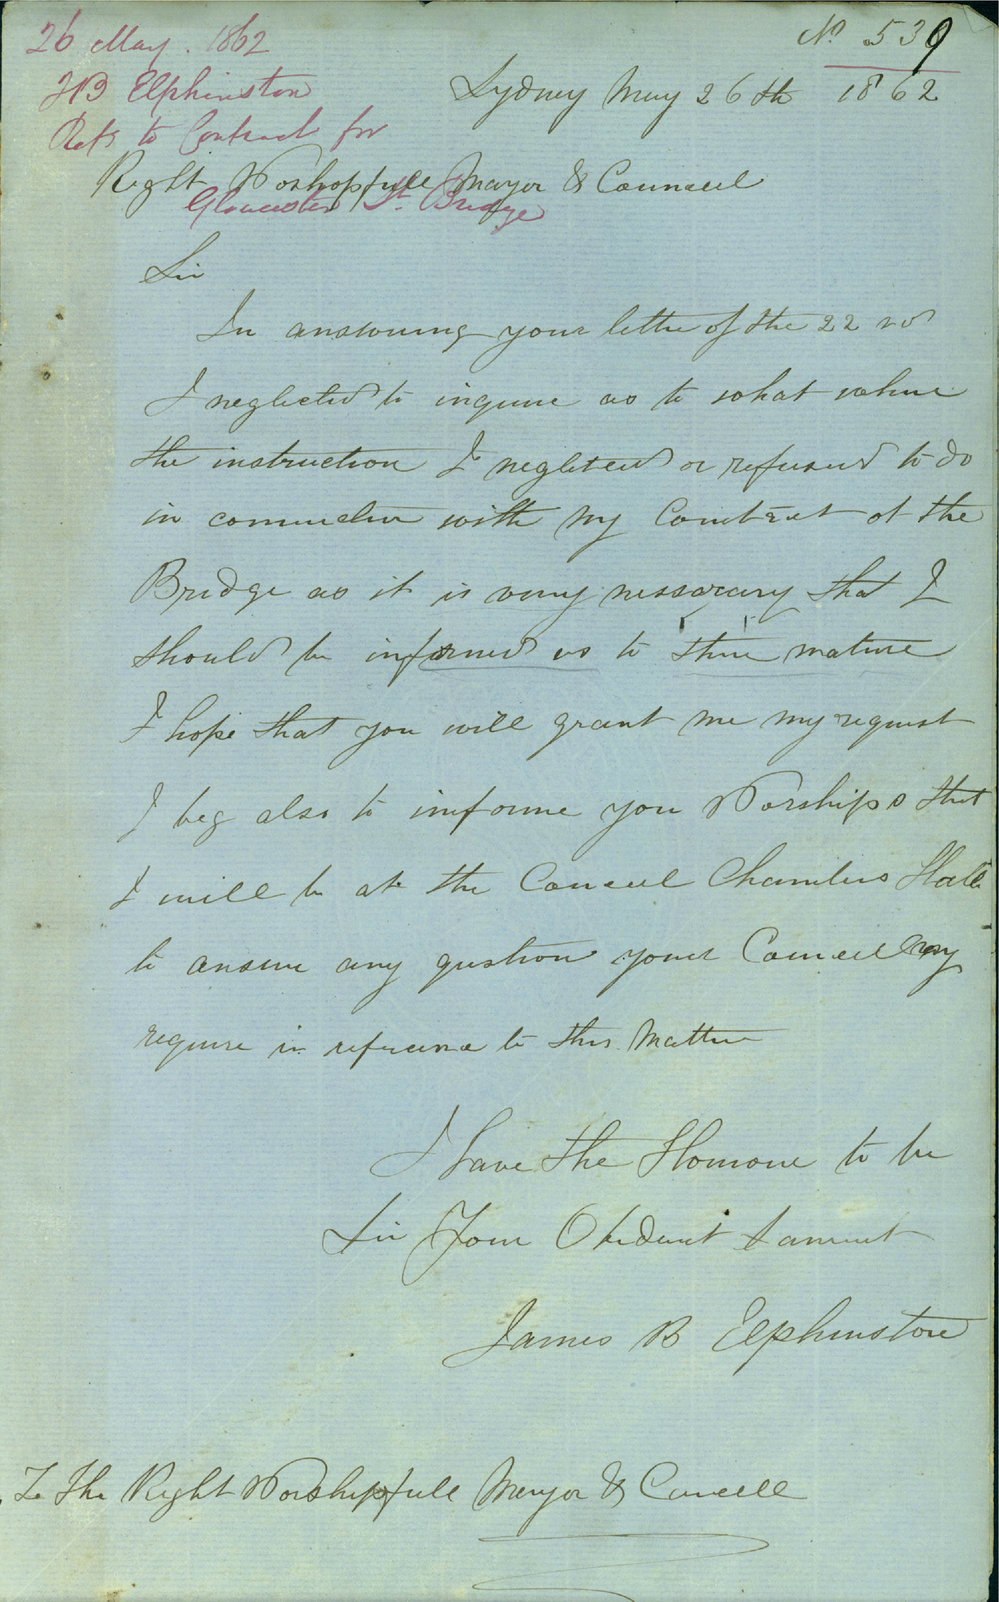 26 May. 1862
No 539
JB Elphinston
Sydney May 26th 1862
Refs to Contract for
Right Worshopfull Mayor & Counceil
Gloucester St. Bridge
Sir
In answering your letter of the 22nd
I neglected to inquire as to what
the instruction I neglected or refused to do
in connection with my Contract at the
Bridge as it is very nessarary that I
should be informed as to there nature
I hope that you will grant me my request
I beg also to informe you Worships that
I will be at the Council Chambers Hall
to answer any qustion your Councell may
require in referance to this Matter
I have the Honoure to be
Sir Your Obedient Sarvent
James B Elphinstone
To The Right Worshipfull Mayor & Councell